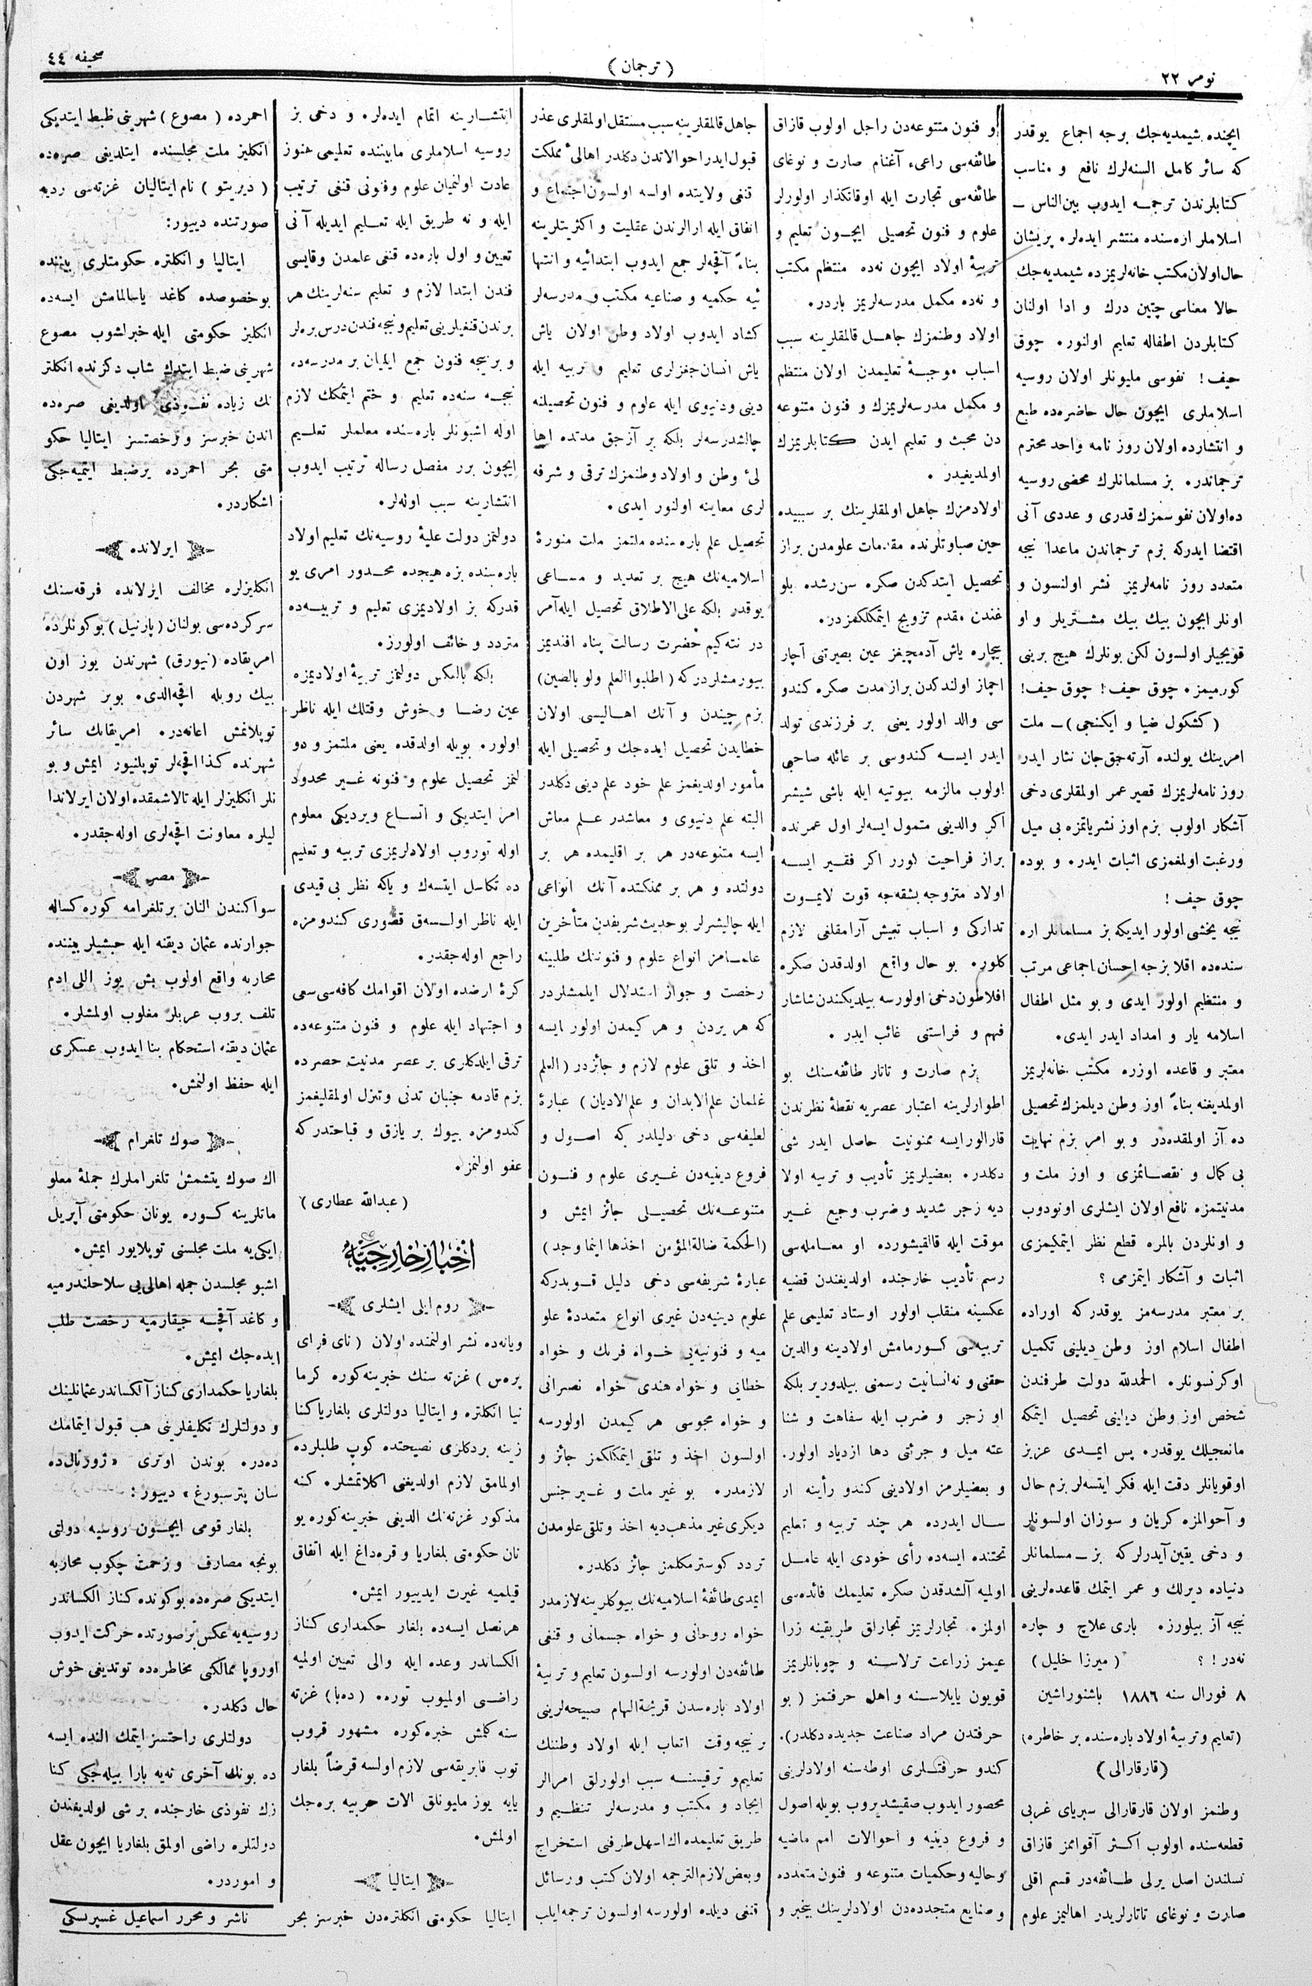 نومر ٢٢
( ترجمان )
صحيفه ٤٤
ايچنده شيمديه‌جك برجه اجماع يوقدر
كه سائر كامل السنه‌لرك نافع و مناسب
كتابلرندن ترجمه ايدوب بين‌الناس ــ
اسلاملر اره‌سنده منتشر ايده‌لر. پريشان
حال اولان مكتب خانه‌لريمزده شيمديه‌جك
حالا معناسى چتين درك و ادا اولنان
كتابلردن اطفاله تعليم اولنور. چوق
حيف! نفوسى مليونلر اولان روسيه
اسلاملرى ايچون حال حاضره‌ده طبع
و انتشارده اولان روز نامه واحد محترم
ترجماندر. بز مسلمانلرك محضى روسيه
ده اولان نفوسمزك قدرى و عددى آنى
اقتضا ايدركه بزم ترجماندن ماعدا نيجه
متعدد روز نامه‌لريمز نشر اولنسون و
اونلر ايچون بيك بيك مشتريلر و او
قويجيلر اولسون لكن بونلرك هيچ برينى
كورميمز. چوق حيف! چوق حيف!
(كشكول ضيا و ايكنجى) ــ ملت
امرينك يولنده آرته‌جق جان نثار ايدر
روز نامه‌لريمزك قصير عمر اولمقلرى دخى
آشكار اولوب بزم اوز نشرياتمزه بى ميل
ورغبت اولمغمزى اثبات ايدر. و بوده
چوق حيف!
نيجه يخشى اولور ايديكه بز مسلمانلر اره
سنده‌ده اقلا بزجه احسان اجماعى مرتب
و منتظيم اولور ايدى و بو مثل اطفال
اسلاميه يار و امداد ايدر ايدى.
معتبر و قاعده اوزره مكتب خانه‌لريمز
اولمديغنه بناءً اوز وطن ديلمزك تحصيلى
ده آز اولمقده‌در و بو امر بزم نهايت
بى كمال و نقصانمزى و اوز ملت و
مدنيتمزه نافع اولان ايشلرى اونودوب
و اونلردن بالمره قطع نظر ايتمكيمزى
اثبات و آشكار ايتمزمى؟
بر معتبر مدرسه‌مز يوقدركه اوراده
اطفال اسلام اوز وطن ديلينى تكميل
اوكرنسونلر. الحمدلله دولت طرفندن
شخص اوز وطن ديلينى تحصيل ايتمكه
مانعجيلك يوقدر. پس ايمدى عزيز
اوقويانلر دقت ايله فكر ايتسه‌لر بزم حال
و آحوالمزه كريان و سوزان اولسونلر
و دخى يقين آيدرلركه بز ــ مسلمانلر
دنياده ديرلك و عمر ايتمك قاعده‌لرينى
نيجه آز بيلورز. بارى علاج و چاره
نه‌در!؟ (ميرزا خليل)
٨ فورال سنه ١٨٨٦ باشنوراشين
(تعليم و تربيهٔ اولاد باره‌سنده بر خاطره)
(قارقارالى)
وطنمز اولان قارقارالى سبرياى غربى
قطعه‌سنده اولوب اكثر آقوامز قازاق
نسلندن اصل يرلى طائفه‌در قسم اقلى
صارت و نوغاى تاتارلريدر اهاليمز علوم
و فنون متنوعه‌دن راجل اولوب قازاق
طائفه‌سى راعىء آغنام صارت و نوغاى
طائفه‌سى تجارت ايله اوقاتكذار اولورلر
علوم و فنون تحصيلى ايچون تعليم و
تربيهٔ اولاد ايچون نه‌ده منتظم مكتب
و نه‌ده مكمل مدرسه‌لريمز باردر.
اولاد وطنمزك جاهل قالمقلرينه سبب
اسباب موجبهٔ تعليمدن اولان منتظم
و مكمل مدرسه‌لريمزك و فنون متنوعه
دن محبث و تعليم ايدن كتابلريمزك
اولمديغيدر.
اولادمزك جاهل اولمقلرينك بر سببيده
حين صباوتلرنده مقدمات علومدن براز
تحصيل ايتدكدن صكره سن رشده بلو
غندن مقدم تزويج ايتمكلكمزدر.
بيچاره ياش آدمچيغز عين بصيرتنى آچار
آچماز اولندكدن براز مدت صكره كندو
سى والد اولور يعنى بر فرزندى تولد
ايدر ايسه كندوسى بر عائله صاحبى
اولوب مالزمه بيوتيه ايله باشى شيشر
اكر والدينى متمول ايسه‌لر اول عمرنده
براز فراحيت كورر اكر فقير ايسه
اولاد متزوجه بشقه‌جه قوت لايموت
تداركى و اسباب تعيش آرامقلغى لازم
كلور. بو حال واقع اولدقدن صكره
افلاطون دخى اولورسه بيلديكندن شاشار
فهم و فراستنى غائب ايدر.
بزم صارت و تاتار طائفه‌سنك بو
اطوارلرينه اعتبار عصريه نقطهٔ نظرندن
قارالور ايسه ممنونيت حاصل ايدر شى
دكلدر. بعضيلريمز تأديب و تربيه اولا
ديه زجر شديد و ضرب وجيع غير
موقت ايله قالقيشورده او معامله‌سى
رسم تأديب خارجنده اولديغندن قضيه
عكسينه منقلب اولور اوستاد تعليمى علم
تربيه‌سى كورمامش اولادينه والدين
حقنى و نه‌انسانيت رسمنى بيلدورير بلكه
او زجر و ضرب ايله سفاهت و شنا
عته ميل و جرئتى دها ازدياد اولور.
و بعضيلرمز اولادينى كندو رأينه ار
سال ايدرده هر چند تربيه و تعليم
تحتنده ايسه‌ده رأى خودى ايله عامل
اوليه آلشدقدن صكره تعليمك فائده‌سى
اولمز. تجارلريمز تجارلق طريقينه زرا
عيمز زراعت ترلاسنه و چوبانلريمز
قويون يايلاسنه و اهل حرفتمز (بو
حرفتدن مراد صناعت جديده دكلدر).
كندو حرفتلرى اوطه‌سنه اولادلرينى
محصور ايدوب صقيشديروب بويله اصول
و فروع دينيه و احوالات امم ماضيه
وحاليه و حكميات متنوعه و فنون متعدده
و صنايع متجدده‌دن اولادلرينك بيخبر و
جاهل قالمقلرينه سبب مستقل اولمقلرى عذر
قبول ايدر احوالاتدن دكلدر اهالىٔ مملكت
قنغى ولايتده اولسه اولسون اجتماع و
اتفاق ايله ارالرندن عقليت و اكثريتلرينه
بناءً آقچه‌لر جمع ايدوب ابتدائيه و انتها
ئيه حكميه و صناعيه مكتب و مدرسه‌لر
كشاد ايدوب اولاد وطن اولان ياش
ياش انسانجغزلرى تعليم و تربيه ايله
دينى و دنيوى ايله علوم و فنون تحصيلنه
چالشدرسه‌لر بلكه بر آزجق مدتده اها
لىٔ وطن و اولاد وطنمزك ترقى و شرفه
لرى معاينه اولنور ايدى.
تحصيل علم باره‌سنده ملتمز ملت منورهٔ
اسلاميه‌نك هيچ بر تعديد و مساعى
يوقدر بلكه على‌الاطلاق تحصيل ايله‌آمر
در نته‌كيم حضرت رسالت پناه افنديمز
بيورمشلردركه (اطلبوا العلم ولو بالصين)
بزم چيندن و آنك اهاليسى اولان
خطايدن تحصيل ايده‌جك و تحصيلى ايله
مأمور اولديغمز علم خود علم دينى دكلدر
البته علم دنيوى و معاشدر علم معاش
ايسه متنوعه‌در هر بر اقليمده هر بر
دولتده و هر بر مملكتده آنك انواعى
ايله چاليشرلر بو حديث شريفدن متأخرين
علمامز انواع علوم و فنونك طلبينه
رخصت و جواز استدلال ايلمشلردر
كه هر يردن و هر كيمدن اولور ايسه
اخذ و تلقى علوم لازم و جائزدر (العلم
علمان علم‌الابدان و علم‌الاديان) عبارهٔ
لطيفه‌سى دخى دليلدر كه اصول و
فروع دينيه‌دن غيرى علوم و فنون
متنوعه‌نك تحصيلى جائز ايمش و
(الحكمة ضالةالمؤمن اخذها اينما وجد)
عبارهٔ شريفه‌سى دخى دليل قويدركه
علوم دينيه‌دن غيرى انواع متعددهٔ علو
ميه و فنونيه‌يى خواه فرنك و خواه
خطائى و خواه هندى خواه نصرانى
و خواه مجوسى هر كيمدن اولورسه
اولسون اخذ و تلقى ايتمكلكمز جائز و
لازمدر. بو غير ملت و غير جنس
ديكرى غير مذهب ديه اخذ و تلقى علومدن
تردد كوسترمكلمز جائز دكلدر.
ايمدى طائفهٔ اسلاميه‌نك بيوكلرينه لازمدر
خواه روحانى و خواه جسمانى و قنغى
طائفه‌دن اولورسه اولسون تعليم و تربيهٔ
اولاد باره‌سدن قريحهٔ الهام صبيحه‌لرينى
ر نيجه وقت اتعاب ايله اولاد وطننك
تعليم و ترقيسنه سبب اولورلق امرالر
ايجاد و مكتب و مدرسه‌لر تنظيم و
طريق تعليمده اك اسهل طرفى استخراج
و بعض لازم الترجمه اولان كتب و رسائل
قنغى ديلده اولورسه اولسون ترجمه ايلب
انتشارينه اتمام ايده‌لر. و دخى بز
روسيه اسلاملرى مابيننده تعليمى هنوز
عادت اولنميان علوم وفنونى قنغى ترتيب
ايله و نه طريق ايله تعليم ايديله آنى
تعيين و اول باره‌ده قنغى علمدن وقايسى
فندن ابتدا لازم و تعليم سنه‌لرينك هر
برندن قنغيلرينى تعليم و نيجه فندن درس بره‌لر
و بر نيجه فنون جمع ايليان بر مدرسه‌ده
نيجه سنه‌ده تعليم و ختم ايتمكك لازم
اوله اشبونلر باره‌سنده معلملر تعليم
ايچون برر مفصل رساله ترتيب ايدوب
انتشارينه سبب اوله‌لر.
دولتمز دولت عليهٔ روسيه‌نك تعليم اولاد
باره‌سنده بزه هيچده محدور امرى يو
قدركه بز اولاديمزى تعليم و تربيه‌ده
متردد و خائف اولورز.
بلكه بالعكس دولتمز تربيهٔ اولاديمزه
عين رضا و خوش وقتلك ايله ناظر
اولور. بويله اولدقده يعنى ملتمز و دو
لتمز تحصيل علوم و فنونه غير محدود
امر ايتديكى و اتساع ويرديكى معلوم
اوله توروب اولادلريمزى تربيه و تعليم
ده تكاسل ايتسه‌ك و ياكه نظر بى قيدى
ايله ناظر اولسه‌ق قصورى كندومزه
راجع اوله‌جقدر.
كرهٔ ارضده اولان اقوامك كافه‌سى سعى
و اجتهاد ايله علوم و فنون متنوعه‌ده
ترقى ايلدكلرى بر عصر مدنيت حصرده
بزم قادمه جنبان تدنى وتنزل اولمقليغمز
كندومزه بيوك بر يازق و قباحتدركه
عفو اولنمز.
(عبدالله عطارى)
اخبار خارجيه
روم ايلى ايشلرى
ويانه‌ده نشر اولنمنده اولان (ناى فراى
پره‌س) غزته سنك خبرينه كوره كرما
نيا انكلتره و ايتاليا دولتلرى بلغاريا كنا
زينه بردكلرى نصيحتده كوپ طلبلرده
اولمامق لازم اولديغنى اكلاتمشلر. كنه
مذكور غزته‌نك الديغى خبرينه كوره يو
نان حكومتى بلغاريا و قره‌داغ ايله اتفاق
قيلميه غيرت ايدييور ايمش.
هر نصل ايسه‌ده بلغار حكمدارى كناز
الكساندر وعده ايله والى تعيين اولميه
راضى اولميوب توره. (ده‌با) غزته
سنه كلمش خبره كوره مشهور قروب
توب فابريقه‌سى لازم اولسه قرضاً بلغار
يايه يوز مليونلق الات حربيه بره‌جك
اولمش.
ايتاليا
ايتاليا حكومتى انكلتره‌دن خبرسز بحر
احمرده (مصوع) شهرينى ظبط ايتديكى
انكليز ملت مجلسنده ايتلديغى صره‌ده
(ديريتو) نام ايتاليان غزته‌سى رديه
صورتنده دييور:
ايتاليا و انكلتره حكومتلرى بيننده
بوخصوصده كاغد ياسالمامش ايسه‌ده
انكليز حكومتى ايله خبراشوب مصوع
شهرينى ضبط ايتدك شاب دكزنده انكلتر
نك زياده نفوذى اولديغى صره‌ده
اندن خبرسز و رخصتسز ايتاليا حكو
متى بحر احمرده يرضبط ايتميه‌جكى
اشكاردر.
ايرلانده
انكليزلره مخالف ايرلانده فرقه‌سنك
سركرده‌سى بولنان (پارنيل) بوكونلرده
امريقاده (نيورق) شهرندن يوز اون
بيك روبله اقچه الدى. بوبر شهردن
توپلانمش اعانه‌در. امريقانك سائر
شهرنده كذا اقچه‌لر توپلنيور ايمش و بو
نلر انكليزلر ايله تالاشمقده اولان ايرلاندا
ليلره معاونت اقچه‌لرى اوله‌جقدر.
مصر
سواكندن النان برتلغرامه كوره كساله
جوارنده عثمان ديقنه ايله حبشيلر بيننده
محاربه واقع اولوب بش يوز اللى ادم
تلف بروب عربلر مغلوب اولمشلر.
عثمان ديقنه استحكام بنا ايدوب عسكرى
ايله حفظ اولنمش.
صوك تلغرام
اك صوك يتشمش تلغراملرك جملهٔ معلو
ماتلرينه كوره يونان حكومتى آپريل
ايكى‌يه ملت مجلسنى توپلايور ايمش.
اشبو مجلسدن جمله اهالى‌يى سلاحلندرميه
و كاغد آقچه چيقارميه رخصت طلب
ايده‌جك ايمش.
بلغاريا حكمدارى كناز آلكساندر عثمانلينك
و دولتلرك تكليفلرينى هب قبول ايتمامك
ده‌در. بوندن اوترى «ژورنال‌ده
سان پترسبورغ» دييور:
بلغار قومى ايچون روسيه دولتى
بونجه مصارف و زحمت چكوب محاربه
ايتديكى صره‌ده بوكونده كناز الكساندر
روسيه‌يه عكس برصورتده حركت ايدوب
اوروپا ممالكنى مخاطره‌ده توتديغى خوش
حال دكلدر.
دولتلرى راحتسز ايتمك النده ايسه
ده بونك آخرى نه‌يه بارا بيله‌جكى كنا
زك نفوذى خارجنده بر شى اولديغندن
دولتلره راضى اولمق بلغاريا ايچون عقل
و اموردر.
ناشر و محرر اسماعيل غسپرنسكى